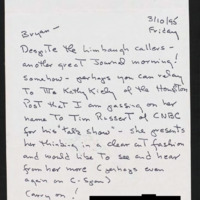 3/10/95
Friday
Bryan —
Despite the Limbaugh callers -
another great Journal morning!
somehow - perhaps you can relay
to Ms Kathy Kiely of the Houston
Post that I am passing on her
name to Tim Russert of CNBC
for his "talk show" - she presents
her thinking in a clear cut fashion
and would like to see and hear
from her more (perhaps even
again on C-Span)
Carry on!